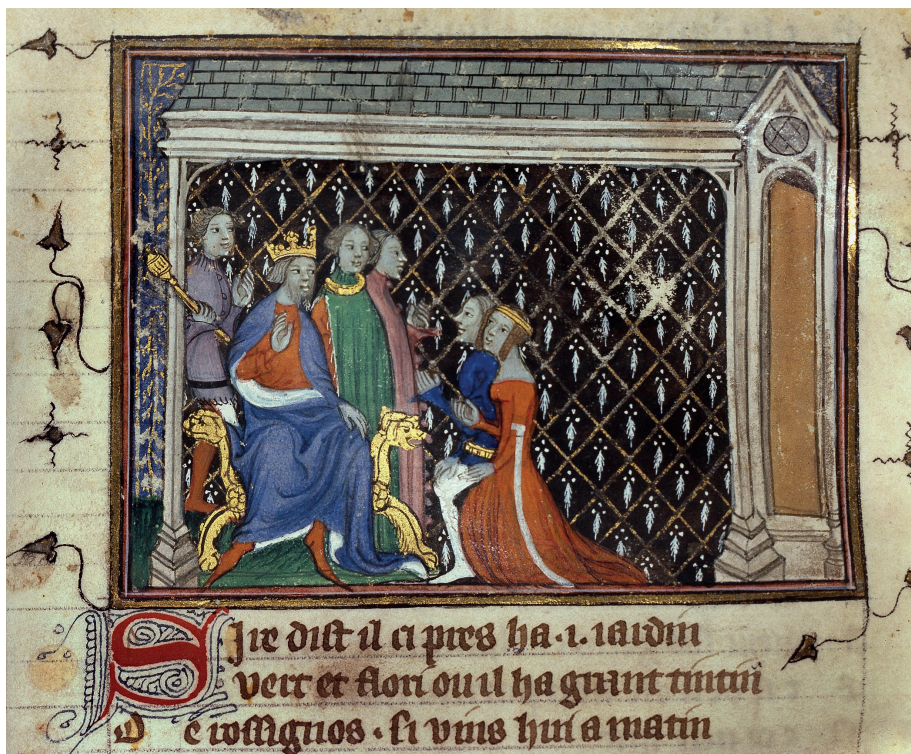 Sire dist il ci pres ha .i. iardin
vert et flori ou il ha grant tintin
De rossignos . si vins hui a matin